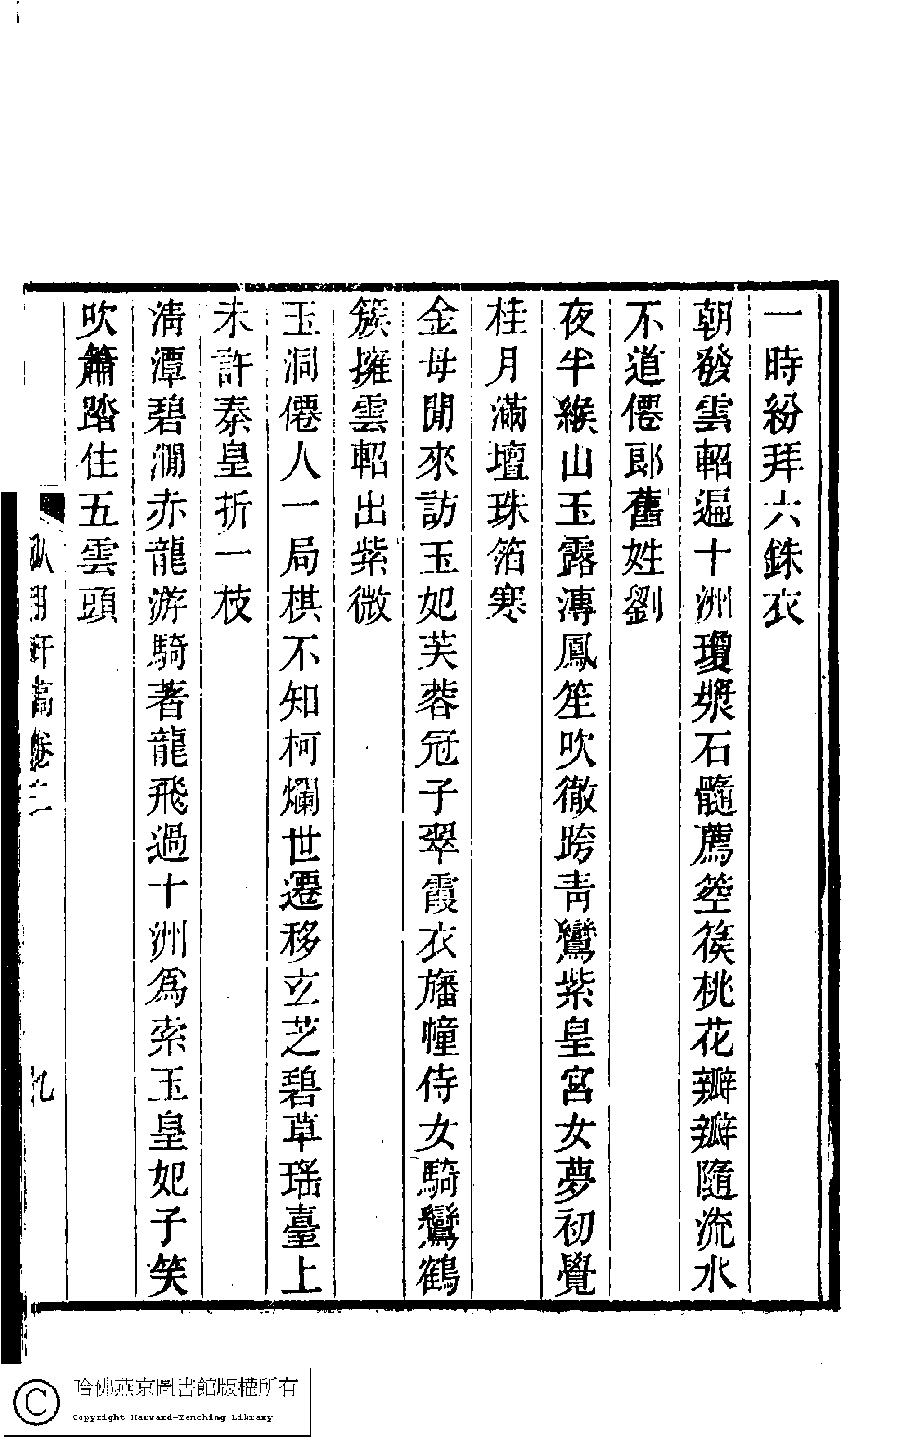 一時紛拜六銖衣
朝發雲軺遍十洲瓊漿石髓薦箜篌桃花瓣瓣隨流水
不道僊郎舊姓劉
夜半緱山玉露漙鳳笙吹徹跨靑鸞紫皇宮女夢初覺
桂月滿壇珠箔寒
金母閒來訪玉妃芙蓉冠子翠霞衣旛幢侍女騎鸞鶴
簇擁雲軺出紫微
玉洞僊人一局棋不知柯爛世遷移玄芝碧草瑤臺上
未許秦皇折一枝
淸潭碧澗赤龍游騎著龍飛過十洲爲索玉皇妃子笑
吹簫踏住五雲頭
軒稿卷二
九
哈佛燕京圖書館版權所有
Copyright Harvard-Yenching Library